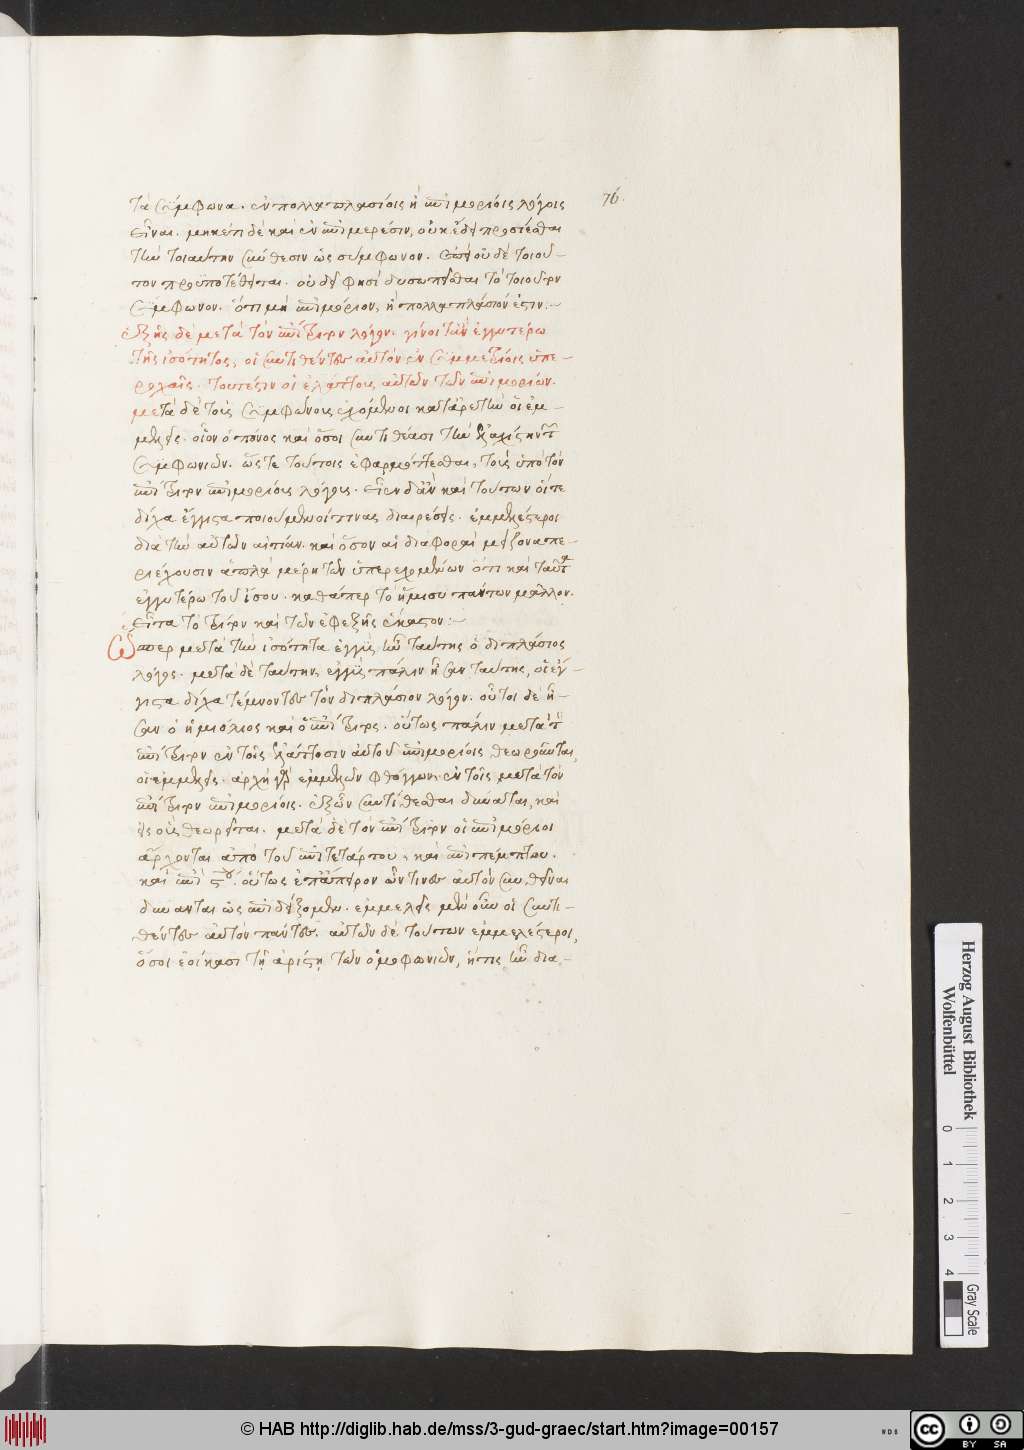 76.
τὰ σύμφωνα. ἐν πολλαπλασίοις ἢ ἐπιμορίοις λόγοις
εἶναι. μηκέτι δὲ καὶ ἐν ἐπιμερέσιν, οὐκ ἔδει προσίεσθαι
τὴν τοιαύτην σύνθεσιν ὡς σύμφωνον. ἐπεὶ οὐδὲ τοιοῦ-
τον προϋποτέθειται. οὐ δεῖ φησὶ δυσωπεῖσθαι τὸ τοιοῦτον
σύμφωνον. ὅτι μὴ ἐπιμόριον, ἢ πολλαπλάσιόν ἐστιν:-
ἑξῆς δὲ μετὰ τὸν ἐπίτριτον λόγον. γίνοιτ' ἂν ἐγγυτέρω
τῆς ἰσότητος, οἱ συντιθέντες αὐτὸν ἐν συμμέτροις ὑπε-
ροχαῖς. τουτέστιν οἱ ἐλάττους αὐτῶν τῶν ἐπιμορίων.
μετὰ δὲ τοὺς συμφώνους ἐχόμενοι κατ' ἀρετὴν οἱ ἐμ-
μελεῖς. οἷον ὁ τόνος καὶ ὅσοι συντιθέασι τὴν ἐλαχίστην τῶν
συμφωνιῶν. ὥστε τούτοις ἐφαρμόττεσθαι, τοὺς ὑπὸ τὸν
ἐπίτριτον ἐπιμορίους λόγους. εἶεν δ' ἂν καὶ τούτων οἵ τε
δίχα ἔγγιστα ποιούμενοί τινας διαιρέσεις. ἐμμελέστεροι
διὰ τὴν αὐτὴν αἰτίαν. καὶ ὅσον αἱ διαφοραὶ μείζονα πε-
ριέχουσιν ἁπλᾶ μέρη τῶν ὑπερεχομένων ὅτι καὶ ταῦτα
ἐγγυτέρω τοῦ ἴσου. καθάπερ τὸ ἥμισυ πάντων μᾶλλον.
εἶτα τὸ τρίτον καὶ τῶν ἐφεξῆς ἕκαστον:-
Ὥσπερ μετὰ τὴν ἰσότητα ἐγγὺς ἦν ταύτης ὁ διπλάσιος
λόγος. μετὰ δὲ ταύτην, ἐγγὺς πάλιν ἦσαν ταύτης, οἱ ἔγ-
γιστα δίχα τέμνοντες τὸν διπλάσιον λόγον. οὗτοι δὲ ἦ-
σαν ὁ ἡμιόλιος καὶ ὁ ἐπίτριτος. οὕτως πάλιν μετὰ τὸν
ἐπίτριτον ἐν τοῖς ἐλάττοσιν αὐτοῦ ἐπιμορίοις, θεωροῦνται,
οἱ ἐμμελεῖς. ἀρχὴ γὰρ ἐμμελῶν φθόγγων. ἐν τοῖς μετὰ τὸν
ἐπίτριτον ἐπιμορίοις. ἐξ ὧν συντίθεσθαι δύναται, καὶ
εἰς οὓς θεωρεῖται. μετὰ δὲ τὸν ἐπίτριτον οἱ ἐπιμόριοι
ἄρχονται ἀπὸ τοῦ ἐπιτετάρτου, καὶ ἐπιπέμπτου.
καὶ ἐπὶ ϛου. οὕτως ἐπ' ἄπειρον ὧν τινες αὐτὸν συνθεῖναι
δύνανται ὡς ἐπιδείξομεν. ἐμμελεῖς μὲν οὖν οἱ συντι-
θέντες αὐτὸν πάντες. αὐτῶν δὲ τούτων ἐμμελέστεροι,
ὅσοι ἐοίκασι τῇ ἀρίστῃ τῶν ὁμοφωνιῶν, ἥτις ἦν δια-
Herzog August Bibliothek
Wolfenbüttel
0 1 2 3 4
Gray Scale
© HAB http://diglib.hab.de/mss/3-gud-graec/start.htm?image=00157
WDB
cc BY SA